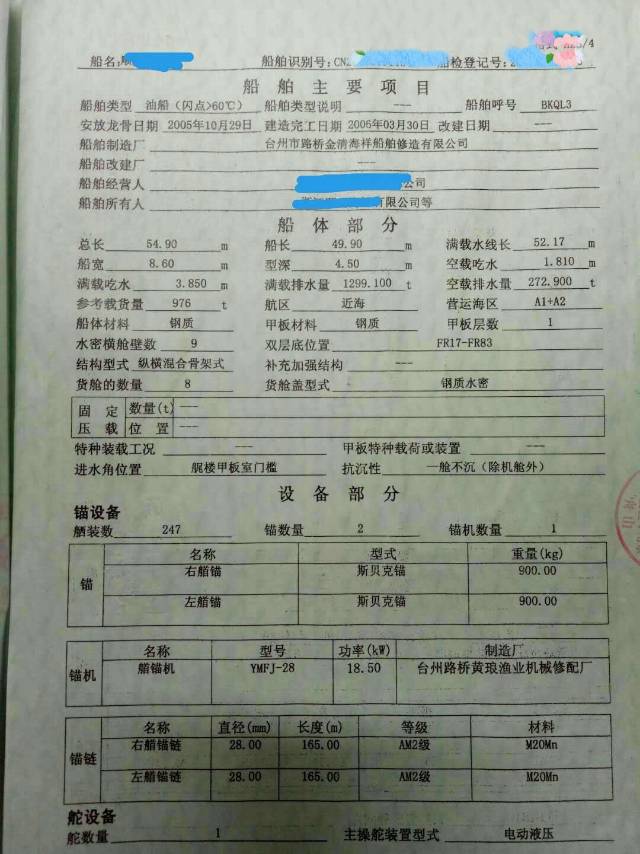 船名: 船舶识别号: 船检登记号:
船舶主要项目
船舶类型 油船(闪点>60℃) 船舶类型说明 --- 船舶呼号 BKQL3
安放龙骨日期 2005年10月29日 建造完工日期 2006年03月30日 改建日期 ---
船舶制造厂 台州市路桥金清海祥船舶修造有限公司
船舶改建厂 ---
船舶经营人 公司
船舶所有人 有限公司等
船体部分
总长 54.90 m 船长 49.90 m 满载水线长 52.17 m
船宽 8.60 m 型深 4.50 m 空载吃水 1.810 m
满载吃水 3.850 m 满载排水量 1299.100 t 空载排水量 272.900 t
参考载货量 976 t 航区 近海 营运海区 A1+A2
船体材料 钢质 甲板材料 钢质 甲板层数 1
水密横舱壁数 9 双层底位置 FR17-FR83
结构型式 纵横混合骨架式 补充加强结构 ---
货舱的数量 8 货舱盖型式 钢质水密
固定 数量(t) ---
压载 位置 ---
特种装载工况 --- 甲板特种载荷或装置 ---
进水角位置 艉楼甲板室门槛 抗沉性 一舱不沉(除机舱外)
设备部分
锚设备
舾装数 247 锚数量 2 锚机数量 1
锚
名称 型式 重量(kg)
右艏锚 斯贝克锚 900.00
左艏锚 斯贝克锚 900.00
锚机
名称 型号 功率(kW) 制造厂
艏锚机 YMFJ-28 18.50 台州路桥黄琅渔业机械修配厂
锚链
名称 直径(mm) 长度(m) 等级 材料
右艏锚链 28.00 165.00 AM2级 M20Mn
左艏锚链 28.00 165.00 AM2级 M20Mn
舵设备
舵数量 1 主操舵装置型式 电动液压